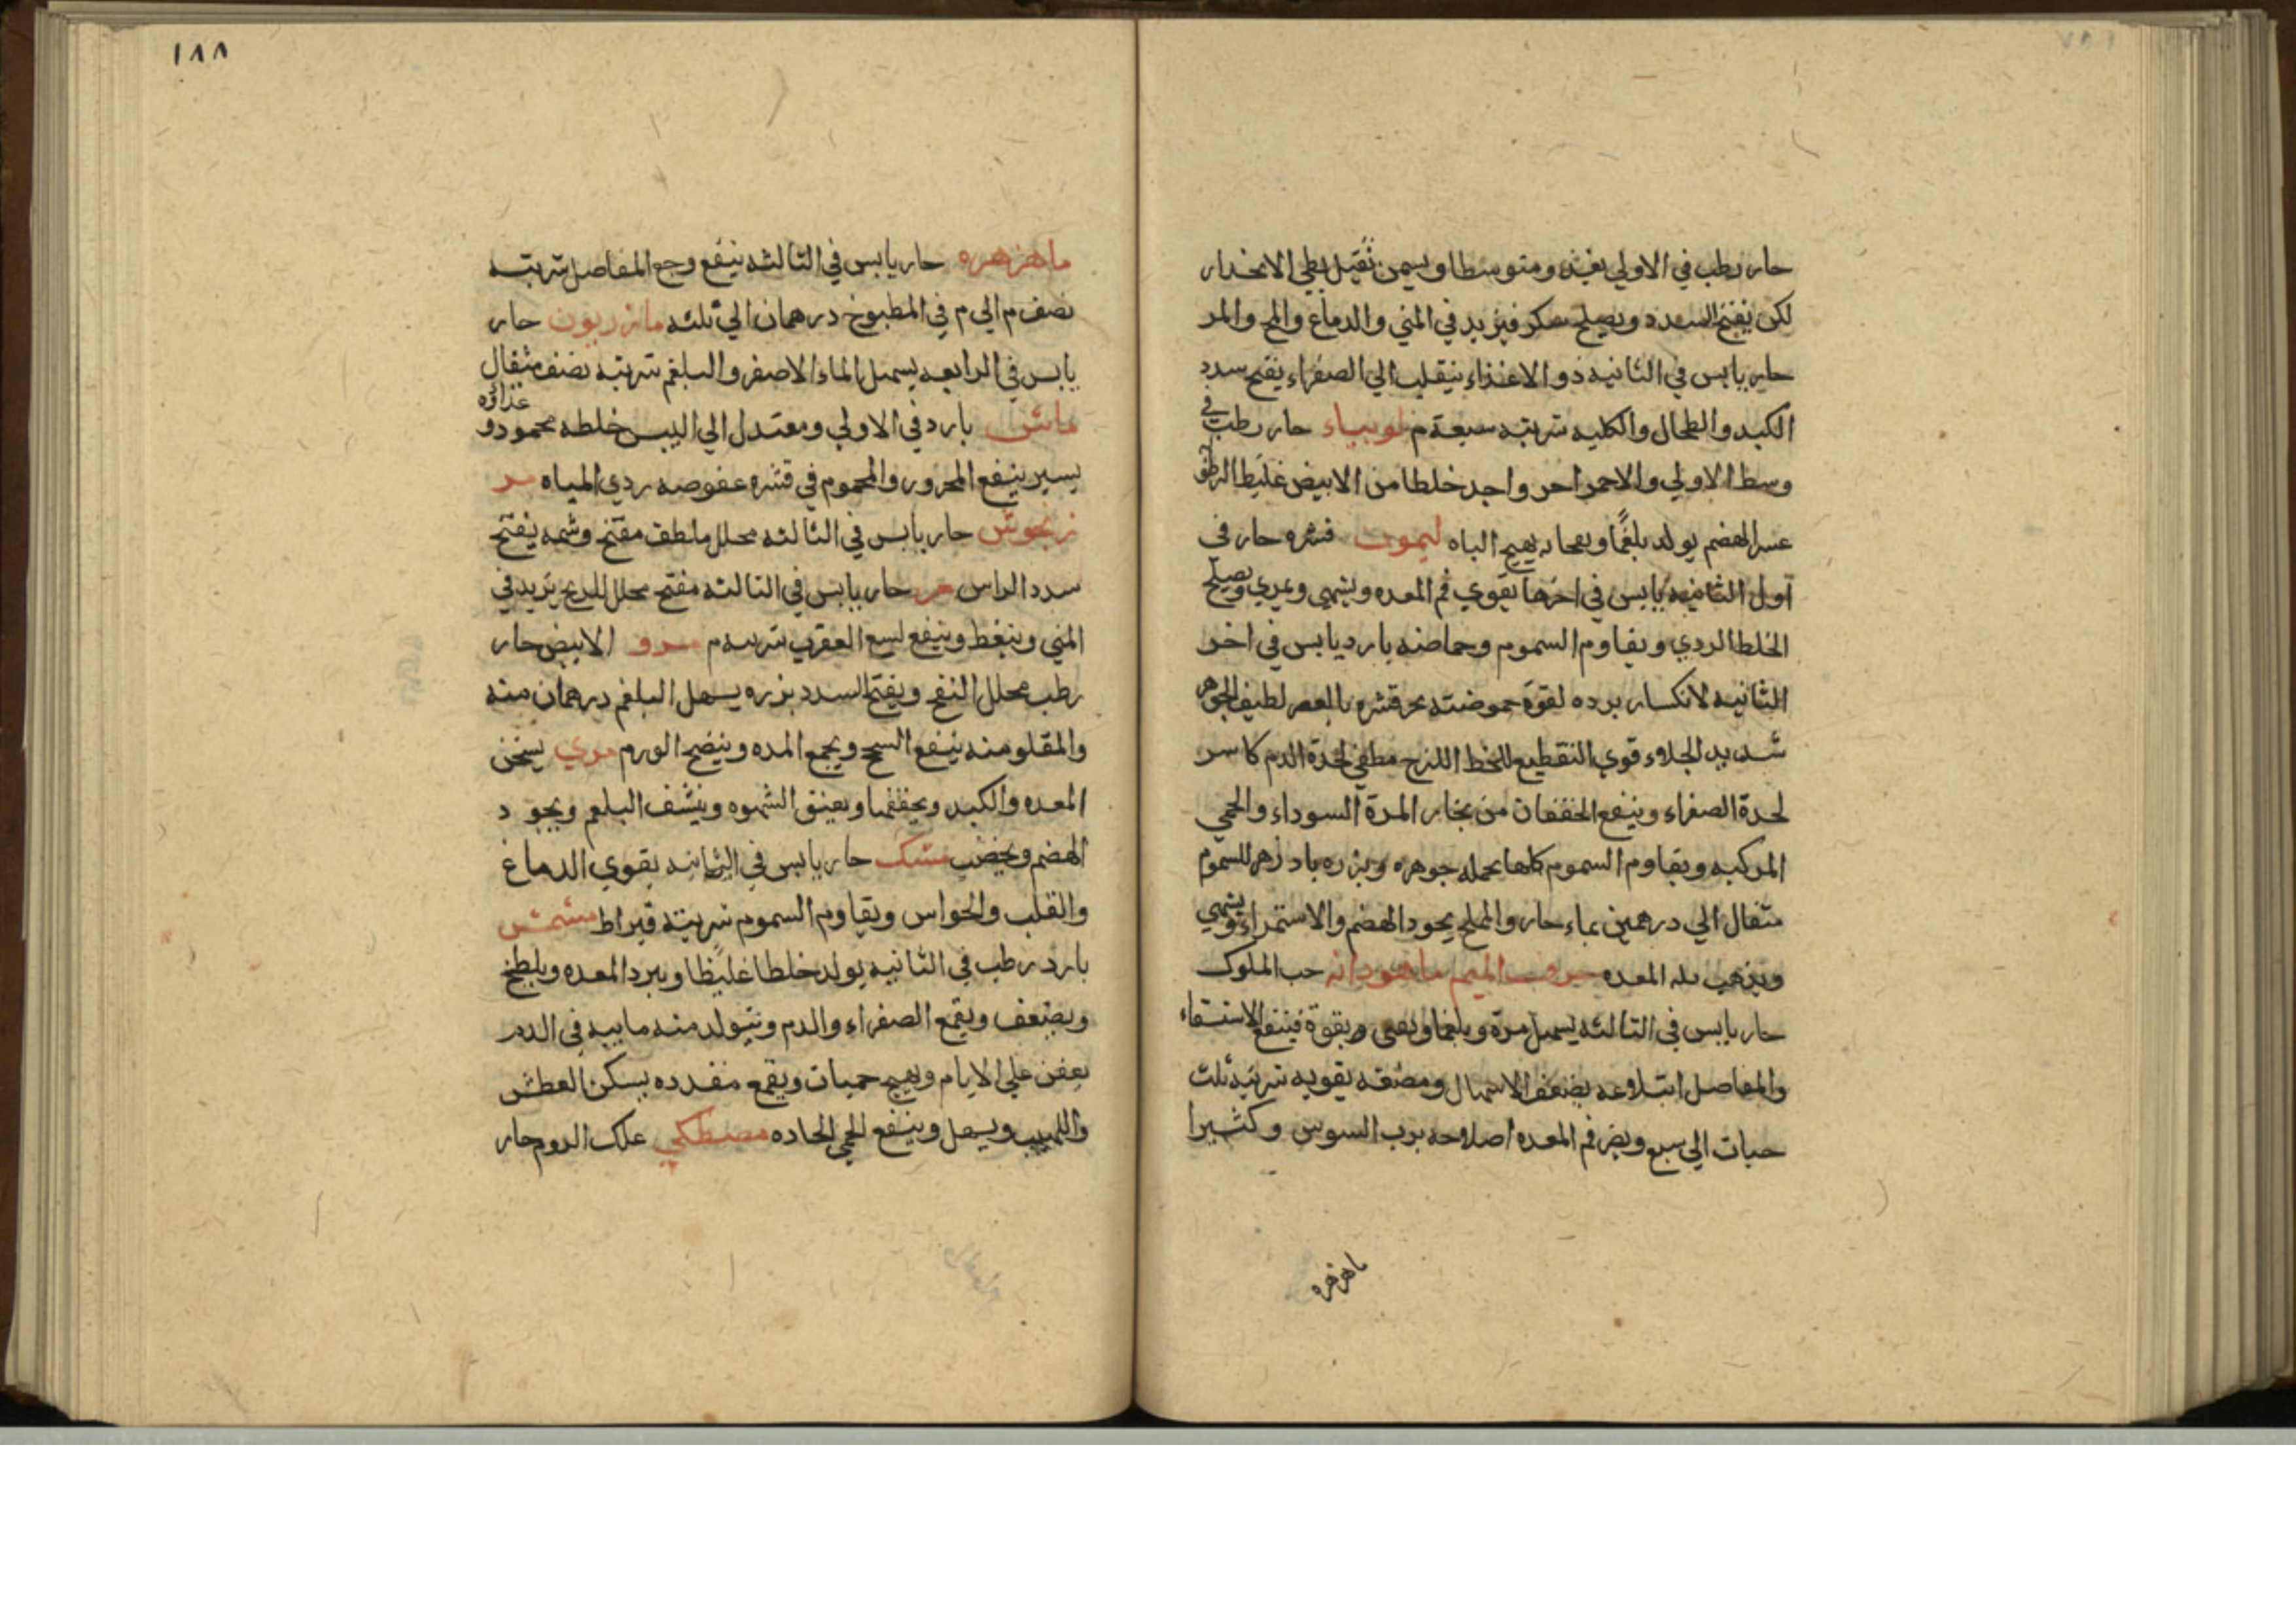 حار رطب في الاولي يغذو متوسطا ويسمن ثقيل بطي الانحدار
لكن يفتح السدد ويصلح سكر فيزيد في المني والدماغ والمخ والمر
حار يابس في الثانيه ذو الاغذاء ينقلب الي الصفراء يفتح سدد
الكبد والطحال والكليه شربته سبعة م لوبياء حار رطب في
وسط الاولي والاحمر احر واجد خلطا من الابيض غليظ الرطو
عسر الهضم يولد بلغمًا وبعحا يهيج الباه ليمون قشره حار في
اول الثانيه يابس في اخرها يقوي فم المعده ويشهي ويمري ويصلح
الخلط الردي ويقاوم السموم وحماضه بارد يابس في اخر
الثانيه لانكسار برده لقوة حموضته بحر قشره بالعصر لطيف الجوهر
شديد الجلاء قوي التقطيع للخط اللزج مطفي لحدة الدم كاسر
لحدة الصفراء وينفع الخفقان من بخار المرة السوداء والحمي
المركبه ويقاوم السموم كلها بحمله جوهره وبزره بادزهر للسموم
مثقال الي درهمين بماء حار والملح يجود الهضم والاستمراء ويشهي
ويذهب بله المعده حرف الميم ماهودانه حب الملوك
حار يابس في الثالثه يسهل مرة وبلغما ويقي بقوة فينفع الاستسقاء
والمفاصل ابتلاعه يضعف الاسهال ومضغه يقويه شربته ثلث
حبات الي سبع ويضر فم المعده اصلاحه برب السوس وكثيرا
ماهزهره
١٨٨
ماهزهره حار يابس في الثالثه ينفع وجع المفاصل شربته
نصف م الي م في المطبوخ درهمان الي ثلثه مازريون حار
يابس في الرابعه يسهل الماء الاصفر والبلغم شربته نصف مثقال
ماش بارد في الاولي ومعتدل الي اليبس خلطه محمود و غذاؤه
يسير ينفع المحرور والمحموم في قشره عفوصه ردي المياه مر
زنجوش حار يابس في الثالثه محلل ملطف مفتح وشمه يفتح
سدد الراس مر حار يابس في الثالثه مفتح محلل للريح يزيد في
المني وينغظ وينفع لسع العقرب شربته م مرو الابيض حار
رطب محلل النفخ ويفتح السدد بزره يسهل البلغم درهمان منه
والمقلو منه ينفع السحج ويجمع المده وينضج الورم مري يسخن
المعده والكبد ويجففهما ويعتق الشهوه وينشف البلغم ويجود
الهضم ويخصب مشك حار يابس في الثانيه يقوي الدماغ
والقلب والحواس ويقاوم السموم شربته قيراط مشمش
بارد رطب في الثانيه يولد خلطا غليظا ويبرد المعده ويلطخ
ويضعف ويقمع الصفراء والدم ويتولد منه مايبه في الدم
يعفن علي الايام ويهيج حميات ويقمع مقدده يسكن العطش
واللهيب ويسهل وينفع الحمي الحاده مصطكي علك الروم حار